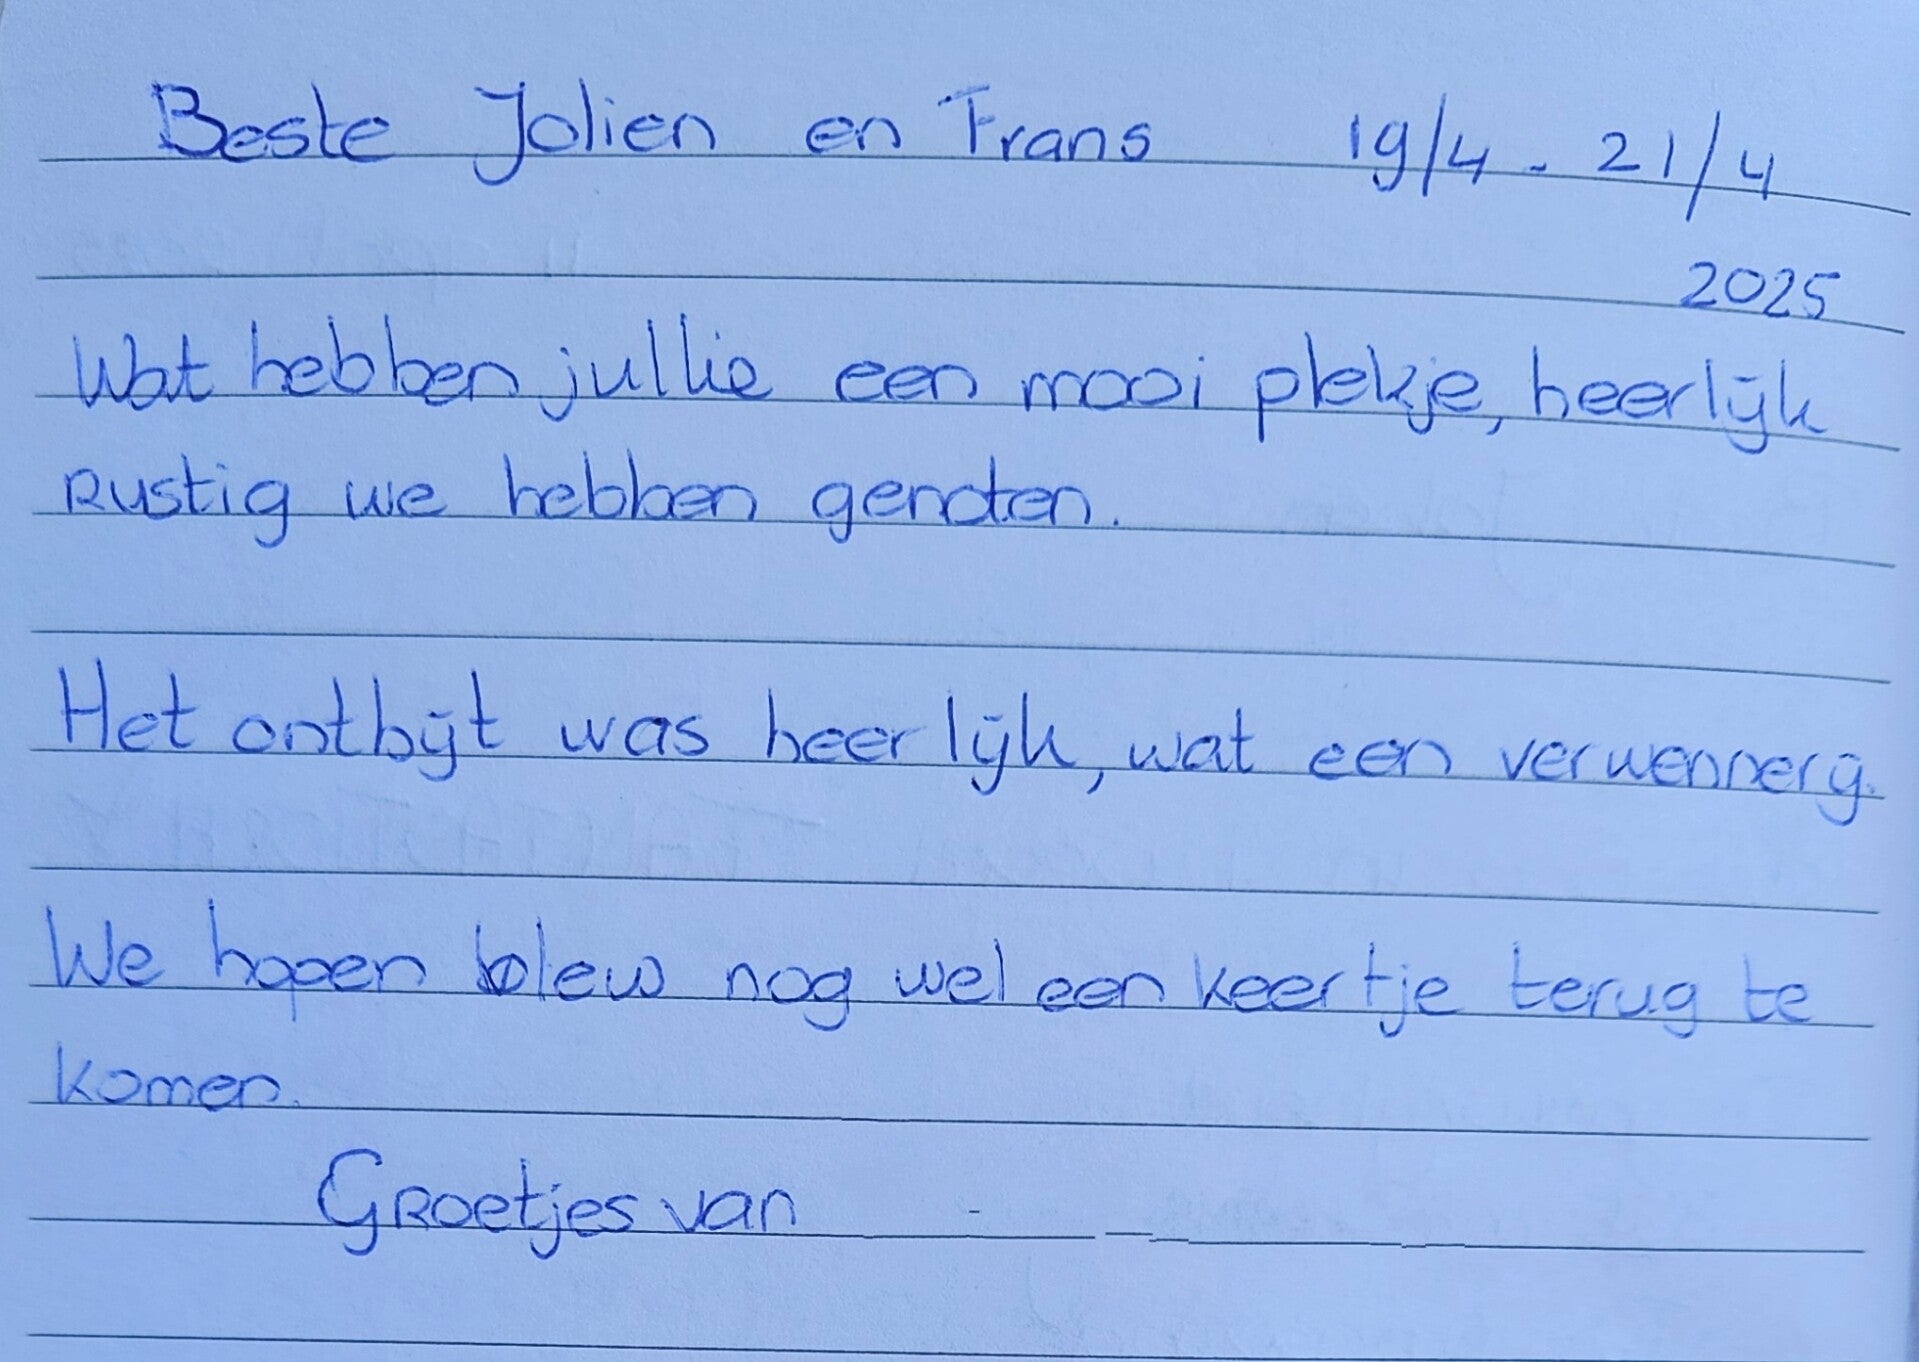 Beste Jolien en Frans 19/4 - 21/4
2025
Wat hebben jullie een mooi plekje, heerlijk
Rustig we hebben genoten.
Het ontbijt was heerlijk, wat een verwennerg.
We hopen nog wel een keertje terug te
komen.
Groetjes van